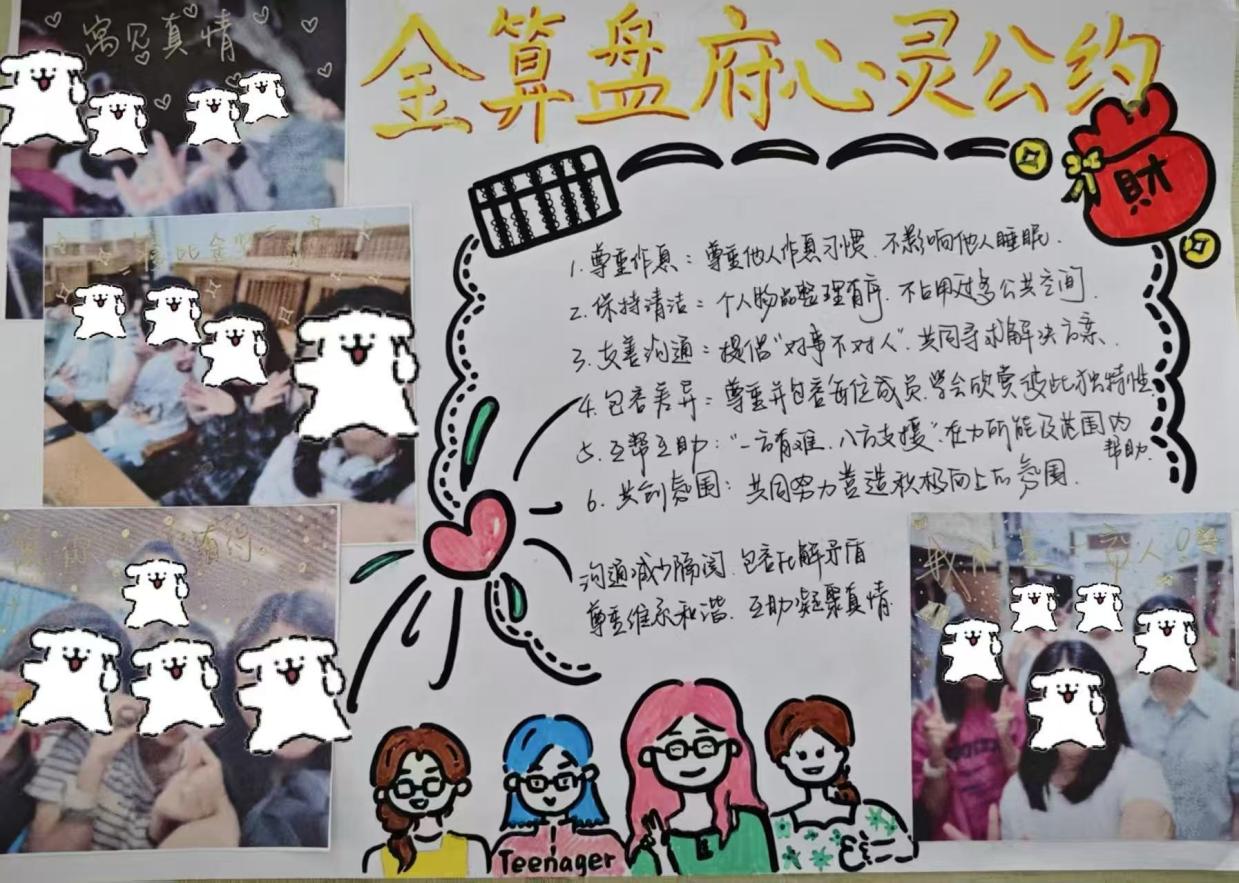 寓见真情
金算盘府心灵公约
財
1.尊重作息：尊重他人作息习惯.不影响他人睡眠.
2.保持清洁：个人物品整理有序.不占用过多公共空间.
3.友善沟通：提倡“对事不对人”.共同寻求解决方案.
4.包容差异：尊重并包容每位成员.学会欣赏彼此独特性.
5.互帮互助：“一方有难.八方支援”.在力所能及范围内
帮助.
6.共创氛围：共同努力营造积极向上的氛围.
沟通减少隔阂.包容化解矛盾
尊重维系和谐.互助凝聚真情
Teenager